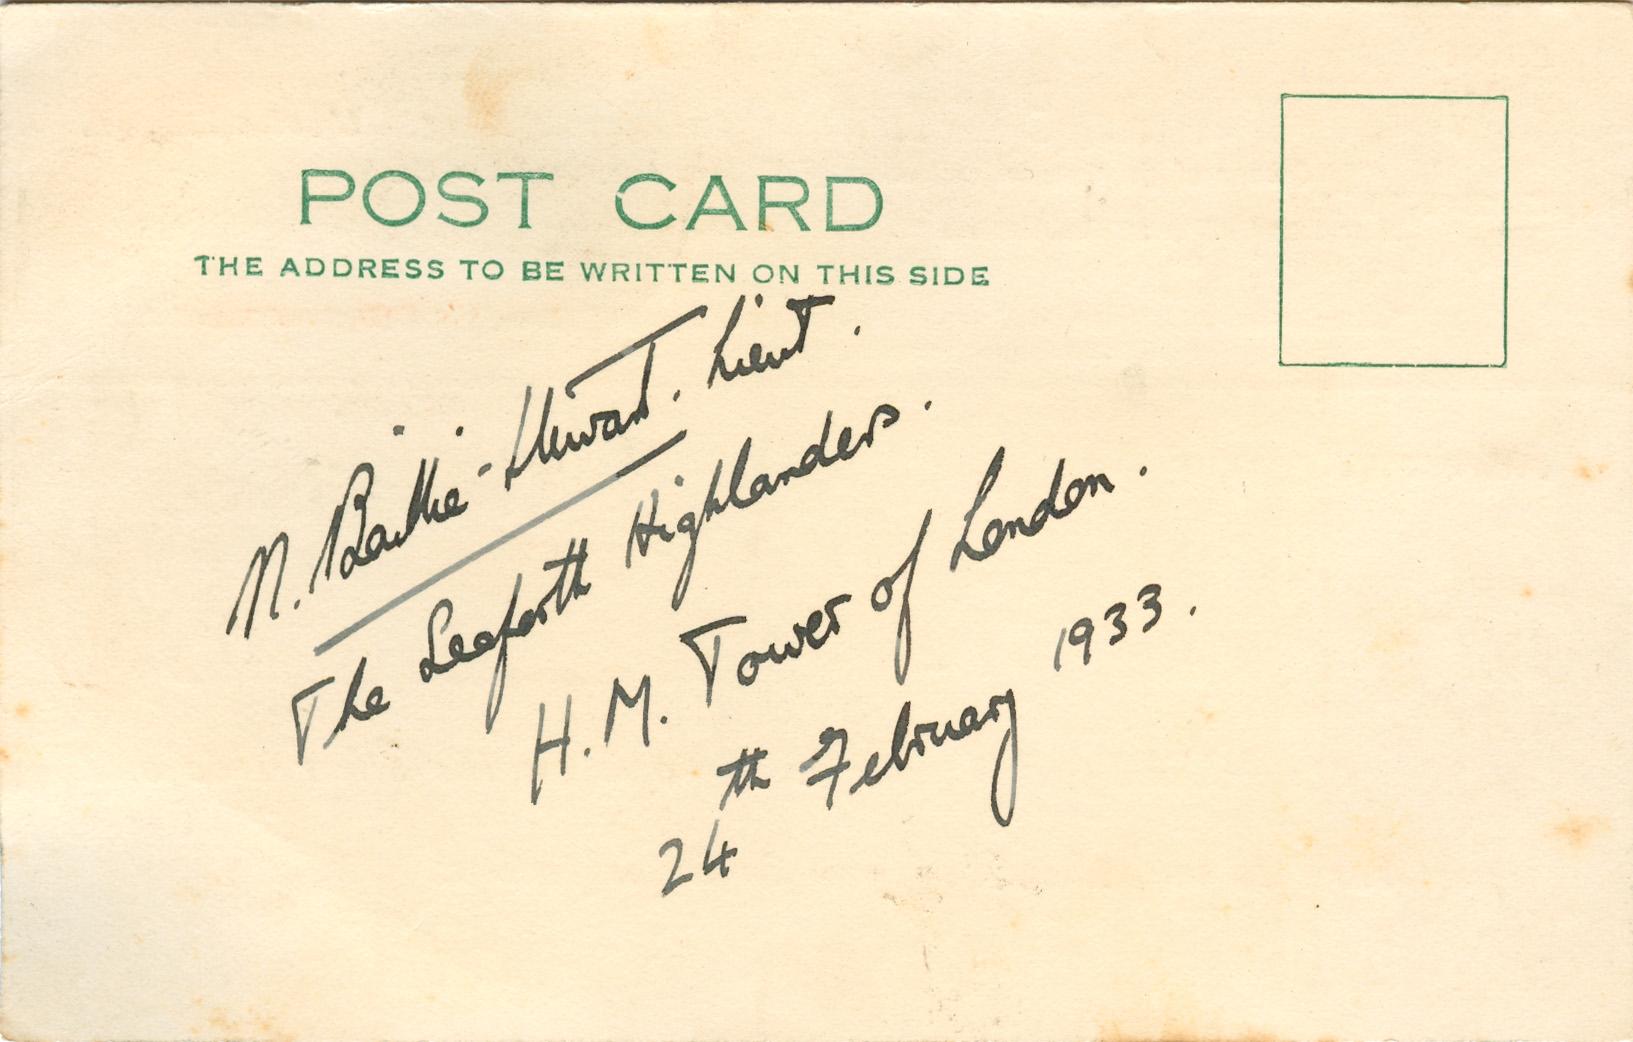 POST CARD
THE ADDRESS TO BE WRITTEN ON THIS SIDE
N. Baillie-Stewart. Lieut.
The Seaforth Highlanders.
H.M. Tower of London.
24th February 1933.